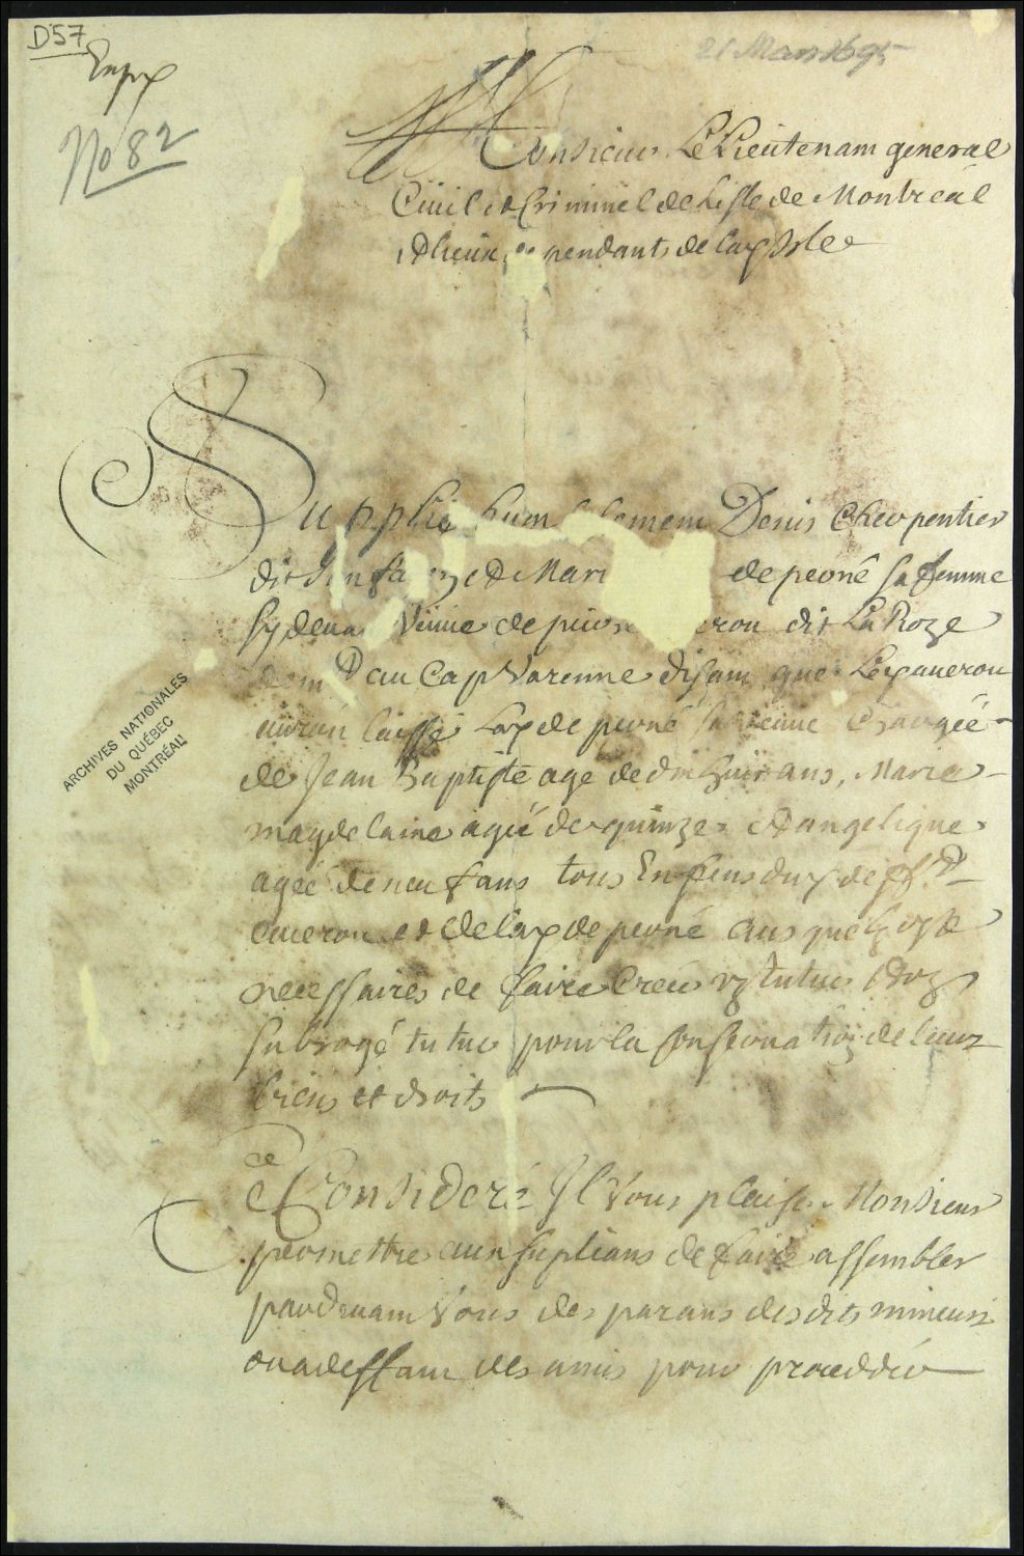 D57
No 82
21 Mars 1695
A Monsieur Le Lieutenant general
Ciuil et Criminel de Lisle de Montreal
et lieux dependants de lad Isle
ARCHIVES NATIONALES
DU QUÉBEC
MONTRÉAL
Supplie humblement Denis Charpentier
dit et Mari de peoné sa femme
sy deua veuue de pierre eron dit La Roze
au Cap Varenne disant que Led caueron
auroit laissé Lad de peoné sa veuue chargéé
de Jean Baptiste age de dix huit ans, Marie
magdelaine agéé de quinze et angelique
ageé de neuf ans tous Enfens dud deff.t
caueron et de lad de peoné ausquels est
necessaires de faire Creer vn tuteur et vn
subrogé tuteur pour la conseruation de leurs
biens et droits
Ce Consideré Il Vous plaise Monsieur
permettre aux suplians de faire assembler
pardeuant Vous des parans desdits mineurs
ou a deffaut des amis pour proceddér